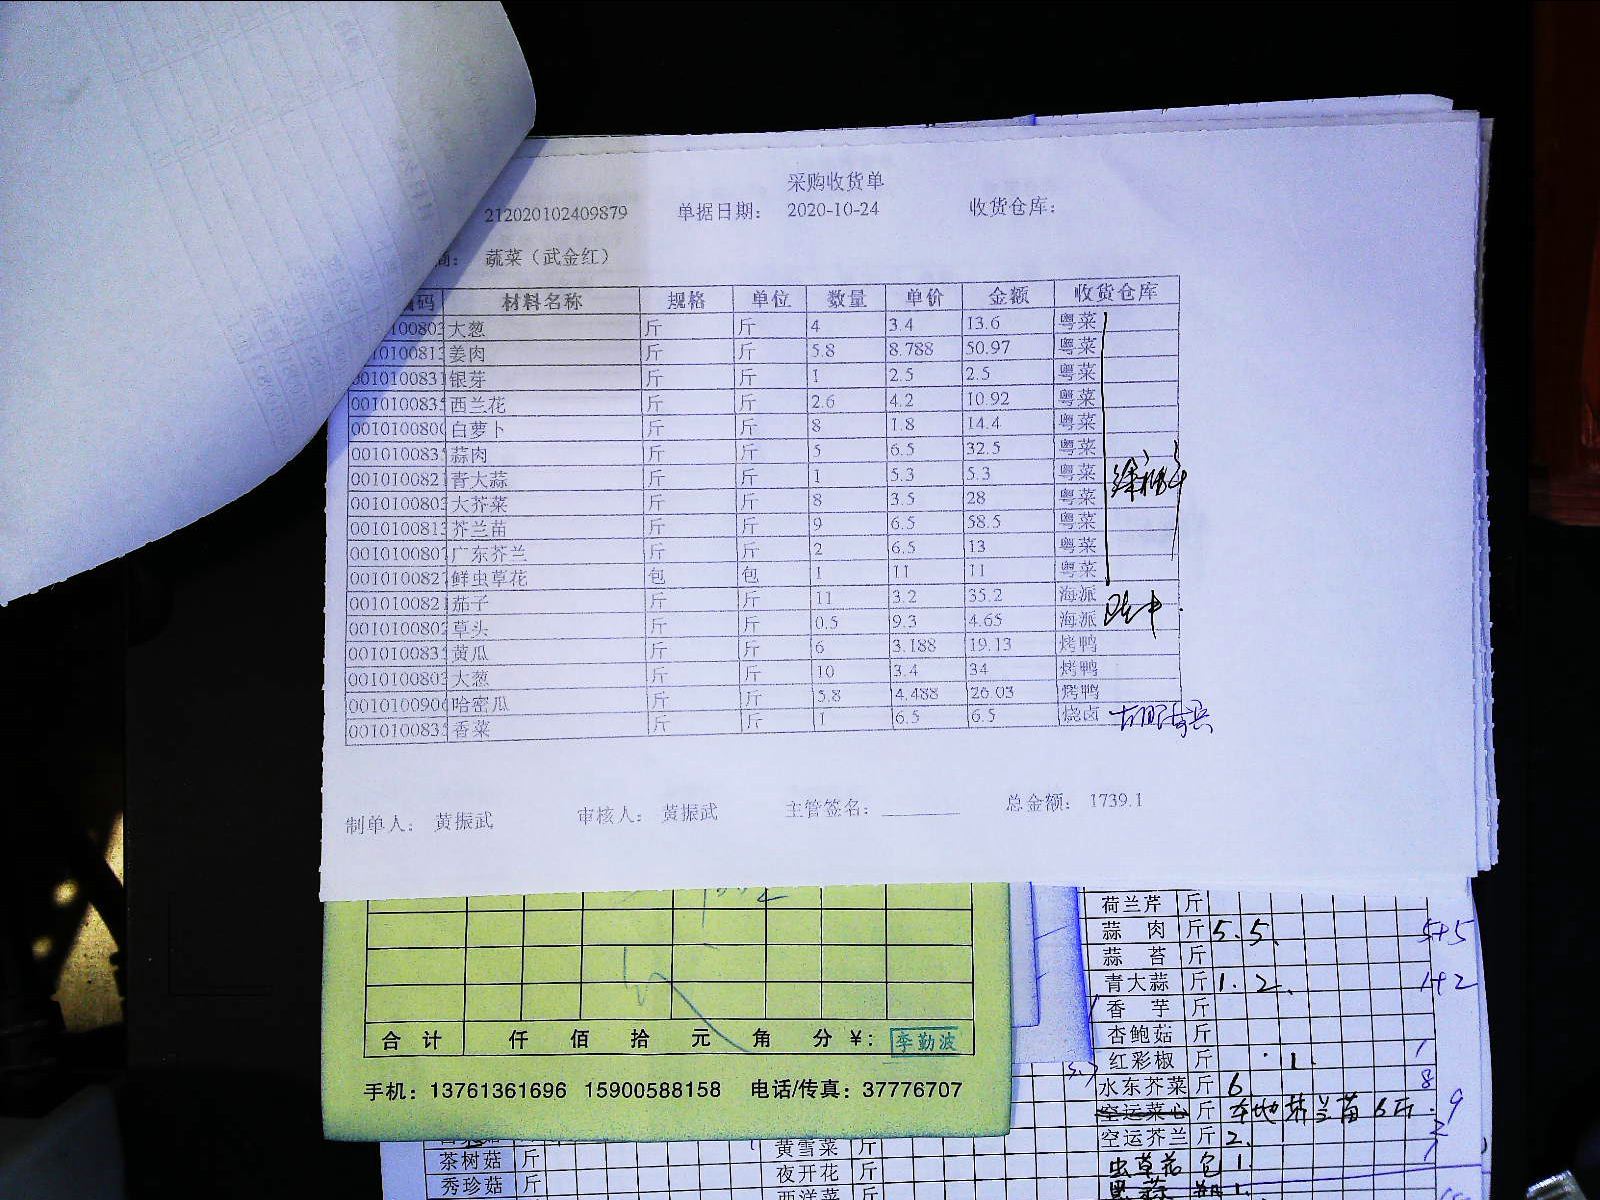 采购收货单
212020102409879 单据日期： 2020-10-24 收货仓库：
商： 蔬菜（武金红）
编码 材料名称 规格 单位 数量 单价 金额 收货仓库
10100803 大葱 斤 斤 4 3.4 13.6 粤菜
010100813 姜肉 斤 斤 5.8 8.788 50.97 粤菜
0010100831 银芽 斤 斤 1 2.5 2.5 粤菜
0010100835 西兰花 斤 斤 2.6 4.2 10.92 粤菜
0010100800 白萝卜 斤 斤 8 1.8 14.4 粤菜
0010100835 蒜肉 斤 斤 5 6.5 32.5 粤菜
0010100821 青大蒜 斤 斤 1 5.3 5.3 粤菜
0010100803 大芥菜 斤 斤 8 3.5 28 粤菜
0010100813 芥兰苗 斤 斤 9 6.5 58.5 粤菜
0010100807 广东芥兰 斤 斤 2 6.5 13 粤菜
0010100827 鲜虫草花 包 包 1 11 11 粤菜
0010100821 茄子 斤 斤 11 3.2 35.2 海派
0010100802 草头 斤 斤 0.5 9.3 4.65 海派
0010100835 黄瓜 斤 斤 6 3.188 19.13 烤鸭
0010100803 大葱 斤 斤 10 3.4 34 烤鸭
0010100906 哈密瓜 斤 斤 5.8 4.488 26.03 烤鸭
0010100835 香菜 斤 斤 1 6.5 6.5 烧卤
制单人： 黄振武 审核人： 黄振武 主管签名： 总金额： 1739.1
合计 仟 佰 拾 元 角 分 ￥： 李勤波
手机：13761361696 15900588158 电话/传真：37776707
荷兰芹 斤
蒜肉 斤 5. 5. 5+5
蒜苔 斤
青大蒜 斤 1. 2. 1+2
香芋 斤
杏鲍菇 斤
红彩椒 斤 1. 1
水东芥菜 斤 6 8
空运菜心 斤 本地芥兰苗 6斤. 9
空运芥兰 斤 2. 2
虫草花 包 1. 1
黑蒜 1.
茶树菇 斤
秀珍菇 斤
黄雪菜 斤
夜开花 斤
西洋菜 斤